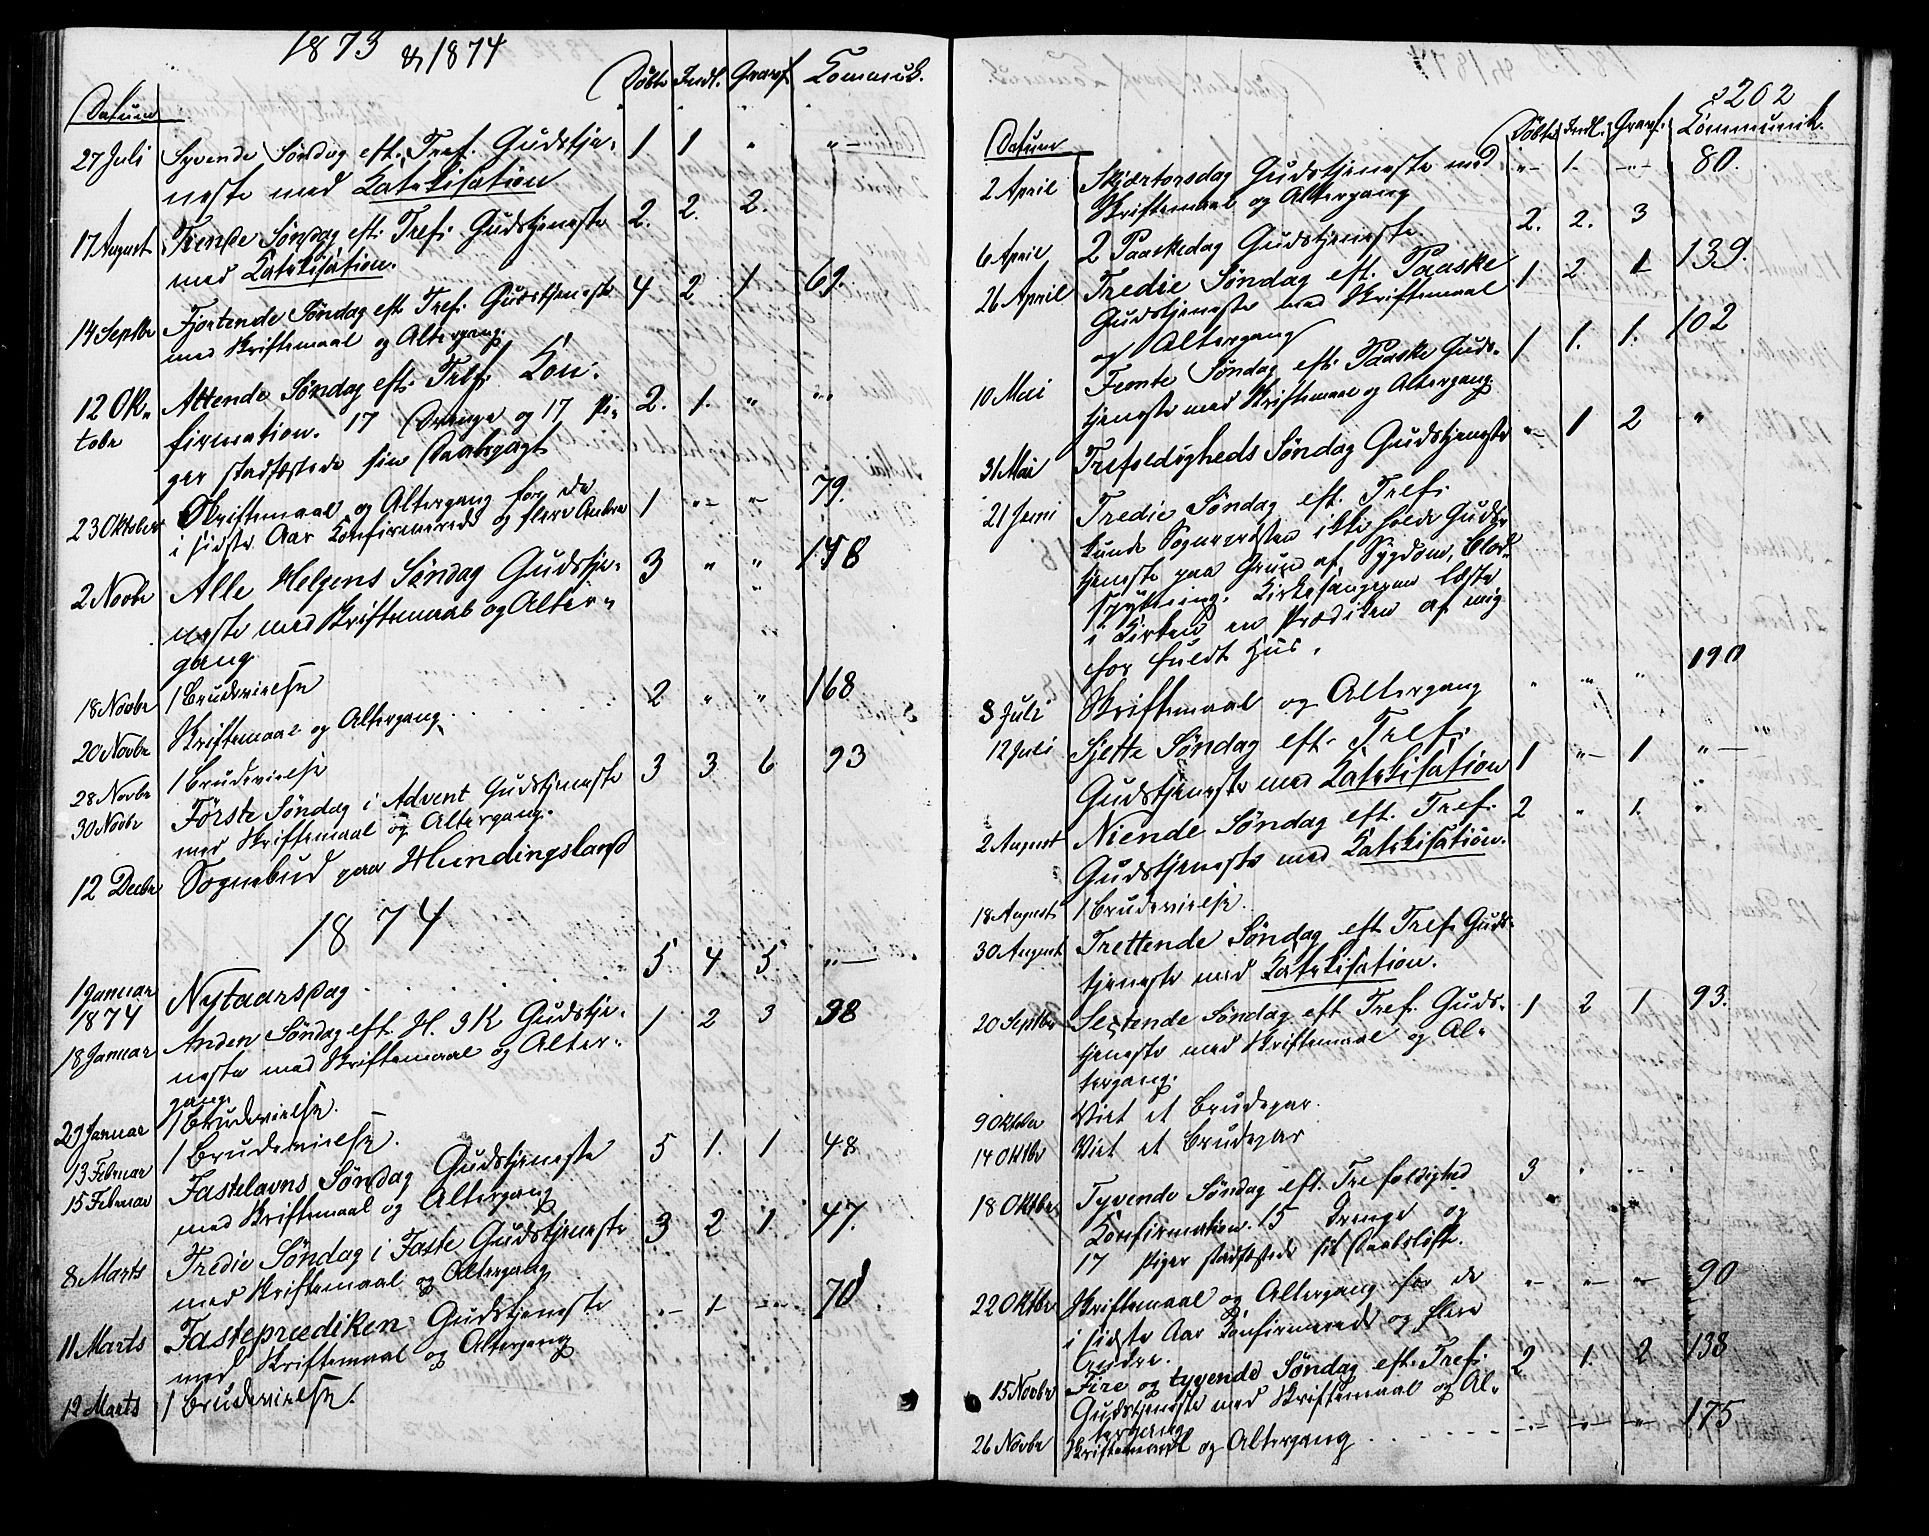 1873 & 1874
Datum Døbte Indl. Gravf. Kommuk.
27 Juli Syvende Søndag eft. Tref. Gudstje- 1 1 " "
neste med Katekisation
17 August Tiende Søndag eft. Tref. Gudstjeneste 2. 2. 2.
med Katekisation.
14 Septbr Fjortende Søndag eft. Tref. Gudstjeneste 4 2 1 69.
med Skriftemaal og Altergang.
12 Ok- Attende Søndag eft. Tref. Kon- 2. 1. " "
tobr firmation. 17 Drenge og 17 Pi-
ger stadfæstede sin Daabspagt
23 Oktober Skriftemaal og Altergang for de 1 " " 79.
i sidste Aar Konfirmerede og flere Andre
2 Novbr Alle Helgens Søndag Gudstje- 3 " " 158
neste med Skriftemaal og Alter-
gang
18 Novbr 1 Brudevielse
20 Novbr Skriftemaal og Altergang. 2 " " 168
28 Novbr 1 Brudevielse
30 Novbr Første Søndag i Advent Gudstjeneste 3 3 6 93
med Skriftemaal og Altergang.
12 Decbr Sognebud paa Hundingsland
1874
1 Januar Nytaarsdag 5 4 5. "
1874
18 Januar Anden Søndag eft. H. 3 K Gudstje- 1 2 3 38
neste med Skriftemaal og Alter-
gang.
29 Januar 1 Brudevielse.
13 Februar 1 Brudevielse.
15 Februar Fastelavns Søndag Gudstjeneste 5 1. 1 48
med Skriftemaal og Altergang
8 Marts Tredie Søndag i Faste Gudstjeneste 3 2 1. 47.
med Skriftemaal og Altergang
11 Marts Fasteprædiken Gudstjeneste " 1 " 70
med Skriftemaal og Altergang
12 Marts 1 Brudevielse.
202
Datum Døbte Indl. Gravf. Kommunik.
2 April Skjærtorsdag Gudstjeneste med " 1. " 80.
Skriftemaal og Altergang
6 April 2 Paaskedag Gudstjeneste. 2. 2. 3
26 April Tredie Søndag eft. Paaske 1 2. 1 139.
Gudstjeneste med Skriftemaal
og Altergang
10 Mai Femte Søndag eft. Paaske Guds- 1 1. 1. 102
tjeneste med Skriftemaal og Altergang.
31 Mai Trefoldigheds Søndag Gudstjeneste " 1 2 "
21 Juni Tredie Søndag eft. Tref.
kunde Sognepresten ikke holde Guds-
tjeneste paa Grund af Sygdom, Blod-
spytning. Kirkesangeren læste
i Kirken en Prædiken af mig
for fuldt Hus.
3 Juli Skriftemaal og Altergang " " " 190
12 Juli Sjette Søndag eft. Tref. 1 " 1 "
Gudstjeneste med Katekisation
2 August Niende Søndag eft. Tref. 2 " 1. "
Gudstjeneste med Katekisation.
18 August 1 Brudevielse.
30 August Trettende Søndag eft. Tref. Guds-
tjeneste med Katekisation.
20 Septbr Sextende Søndag eft. Tref. Guds- 1 2 1. 93.
tjeneste med Skriftemaal og Al-
tergang.
9 Oktobr Viet et Brudepar.
14 Oktbr Viet et Brudepar
18 Oktbr Tyvende Søndag eft. Trefoldighed 3 " "
Konfirmation. 15 Drenge og
17 Piger stadfæstede sit Daabsløfte.
22 Oktbr Skriftemaal og Altergang for de " " " 90
i sidste Aar Konfirmerede og flere
Andre.
15 Novbr Fire og tyvende Søndag eft. Tref. 2 1. 2 138
Gudstjeneste med Skriftemaal og Al-
tergang
26 Novbr Skriftemaal og Altergang " " " 175